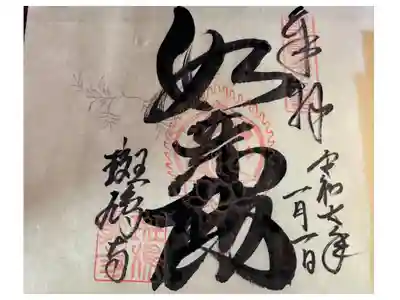 奉拝
令和七年
一月一日
如意輪
斑鳩寺